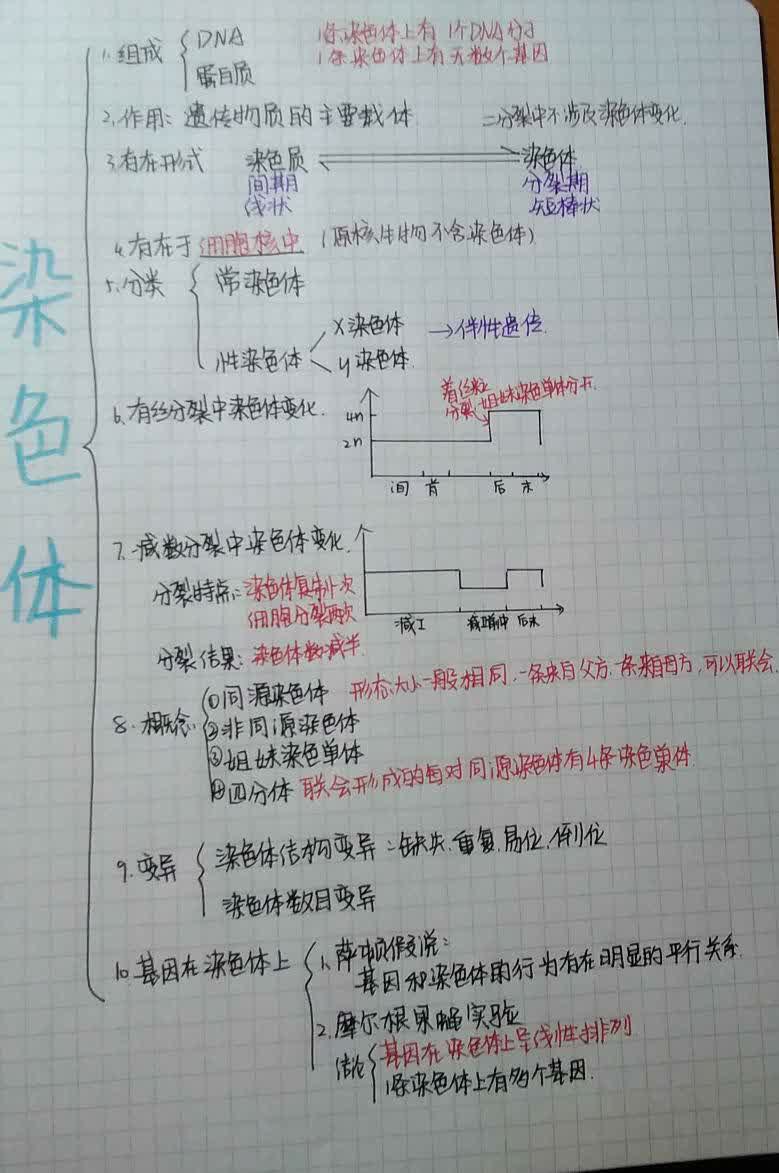 染色体
1.组成 DNA 1条染色体上有1个DNA分子
蛋白质 1条染色体上有无数个基因
2.作用:遗传物质的主要载体 二分裂中不涉及染色体变化.
3.存在形式 染色质 染色体
间期 分裂期
线状 短棒状
4.存在于细胞核中(原核生物不含染色体)
5.分类 常染色体
性染色体 X染色体 →伴性遗传.
y染色体.
6.有丝分裂中染色体变化.
着丝粒
分裂,姐妹染色单体分开.
4n
2n
间 前 后 末
7.减数分裂中染色体变化.
分裂特点:染色体复制1次
细胞分裂两次
减I 减II前中 后末
分裂结果:染色体数减半.
8.概念 ①同源染色体 形态大小一般相同,一条来自父方.一条来自母方,可以联会.
②非同源染色体
③姐妹染色单体
④四分体 联会形成的每对同源染色体有4条染色单体
9.变异 染色体结构变异:缺失.重复.易位.倒位
染色体数目变异
10.基因在染色体上 1.萨顿假说:
基因和染色体的行为存在明显的平行关系.
2.摩尔根果蝇实验
结论 基因在染色体上呈线性排列
1条染色体上有多个基因.